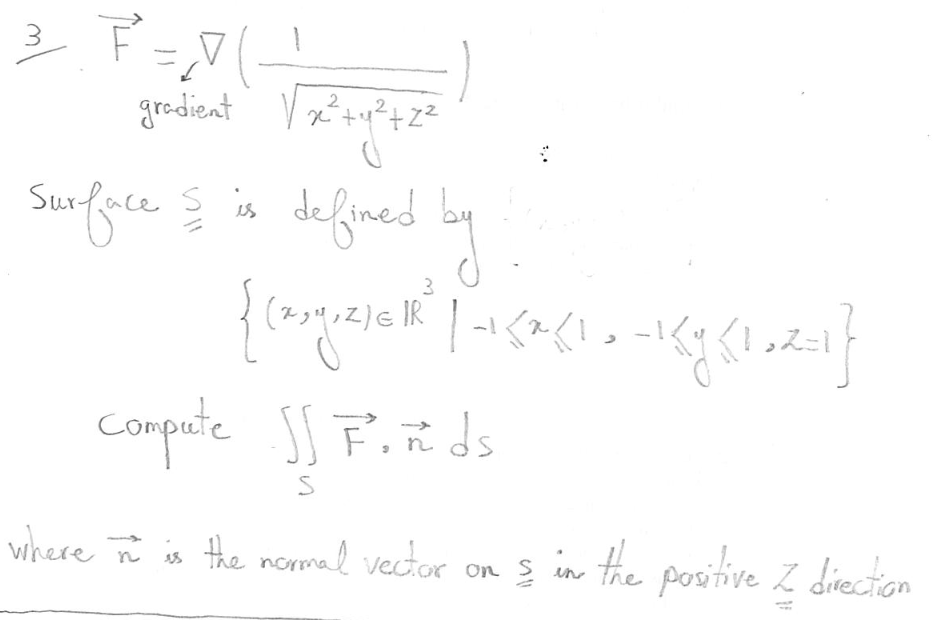 3 F⃗ = ∇( 1 / √(x²+y²+z²) )
gradient
Surface S is defined by
{(x,y,z)∈ℝ³ | -1⩽x⩽1, -1⩽y⩽1, z=1}
compute ∬_S F⃗.n⃗ ds
where n⃗ is the normal vector on S in the positive Z direction